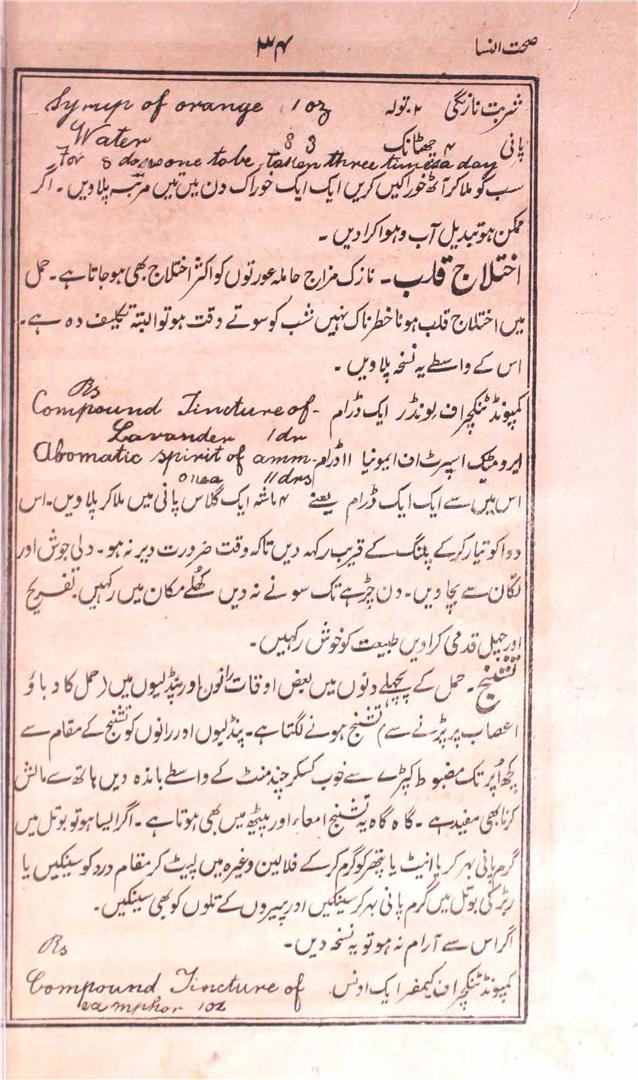 صحت النسا
۳۴
شربت نارنگی ۲ تولہ Syrup of orange 1 oz
پانی ۴ چھٹانک Water 8 3
For 8 doses one to be taken three times a day
سب کو ملا کر آٹھ خوراکیں کریں ایک ایک خوراک دن میں تین مرتبہ پلاویں ۔ اگر
ممکن ہو تبدیل آب و ہوا کرا دیں ۔
اختلاج قلب ۔ نازک مزاج حاملہ عورتوں کو اکثر اختلاج بھی ہو جاتا ہے۔ حمل
میں اختلاج قلب ہونا خطرناک نہیں شب کو سوتے وقت ہو تو البتہ تکلیف دہ ہے۔
اس کے واسطے یہ نسخہ پلاویں ۔
Rs
کمپونڈ ٹنکچر اف لونڈر ایک ڈرام Compound Tincture of-
Lavander 1 dr
ایرومیٹک اسپرٹ اف ایمونیا ۱۱ ڈرام Abomatic spirit of amm-
onea 11 drs
اس میں سے ایک ایک ڈرام یعنے ۴ ماشہ ایک گلاس پانی میں ملا کر پلاویں۔ اس
دوا کو تیار کر کے پلنگ کے قریب رکھ دیں تاکہ وقت ضرورت دیر نہ ہو ۔ دلی جوش اور
تکان سے بچاویں ۔ دن چڑہے تک سونے نہ دیں کھلے مکان میں رکھیں۔ تفریح
اور چہل قدمی کرا دیں طبیعت کو خوش رکھیں۔
تشنج ۔ حمل کے پچھلے دنوں میں بعض اوقات رانوں اور پنڈلیوں میں (حمل کا دباؤ
اعصاب پر پڑنے سے) تشنج ہونے لگتا ہے۔ پنڈلیوں اور رانوں کو تشنج کے مقام سے
کچھ اُپر تک مضبوط کپڑے سے خوب کسکر چند منٹ کے واسطے باندہ دیں ہاتھ سے مالش
کرنا بھی مفید ہے ۔ گاہ گاہ یہ تشنج امعاء اور پیٹھ میں بھی ہوتا ہے۔ اگر ایسا ہو تو بوتل میں
گرم پانی بہر کر یا اینٹ یا پتھر کو گرم کر کے فلالین وغیرہ میں لپیٹ کر مقام درد کو سینکیں یا
ربڑ کی بوتل میں گرم پانی بہر کر سینکیں اور پیروں کے تلوں کو بھی سینکیں۔
اگر اس سے آرام نہ ہو تو یہ نسخہ دیں ۔
Rs
کمپونڈ ٹنکچر اف کیمفر ایک اونس۔ Compound Tincture of
camphor 1 oz